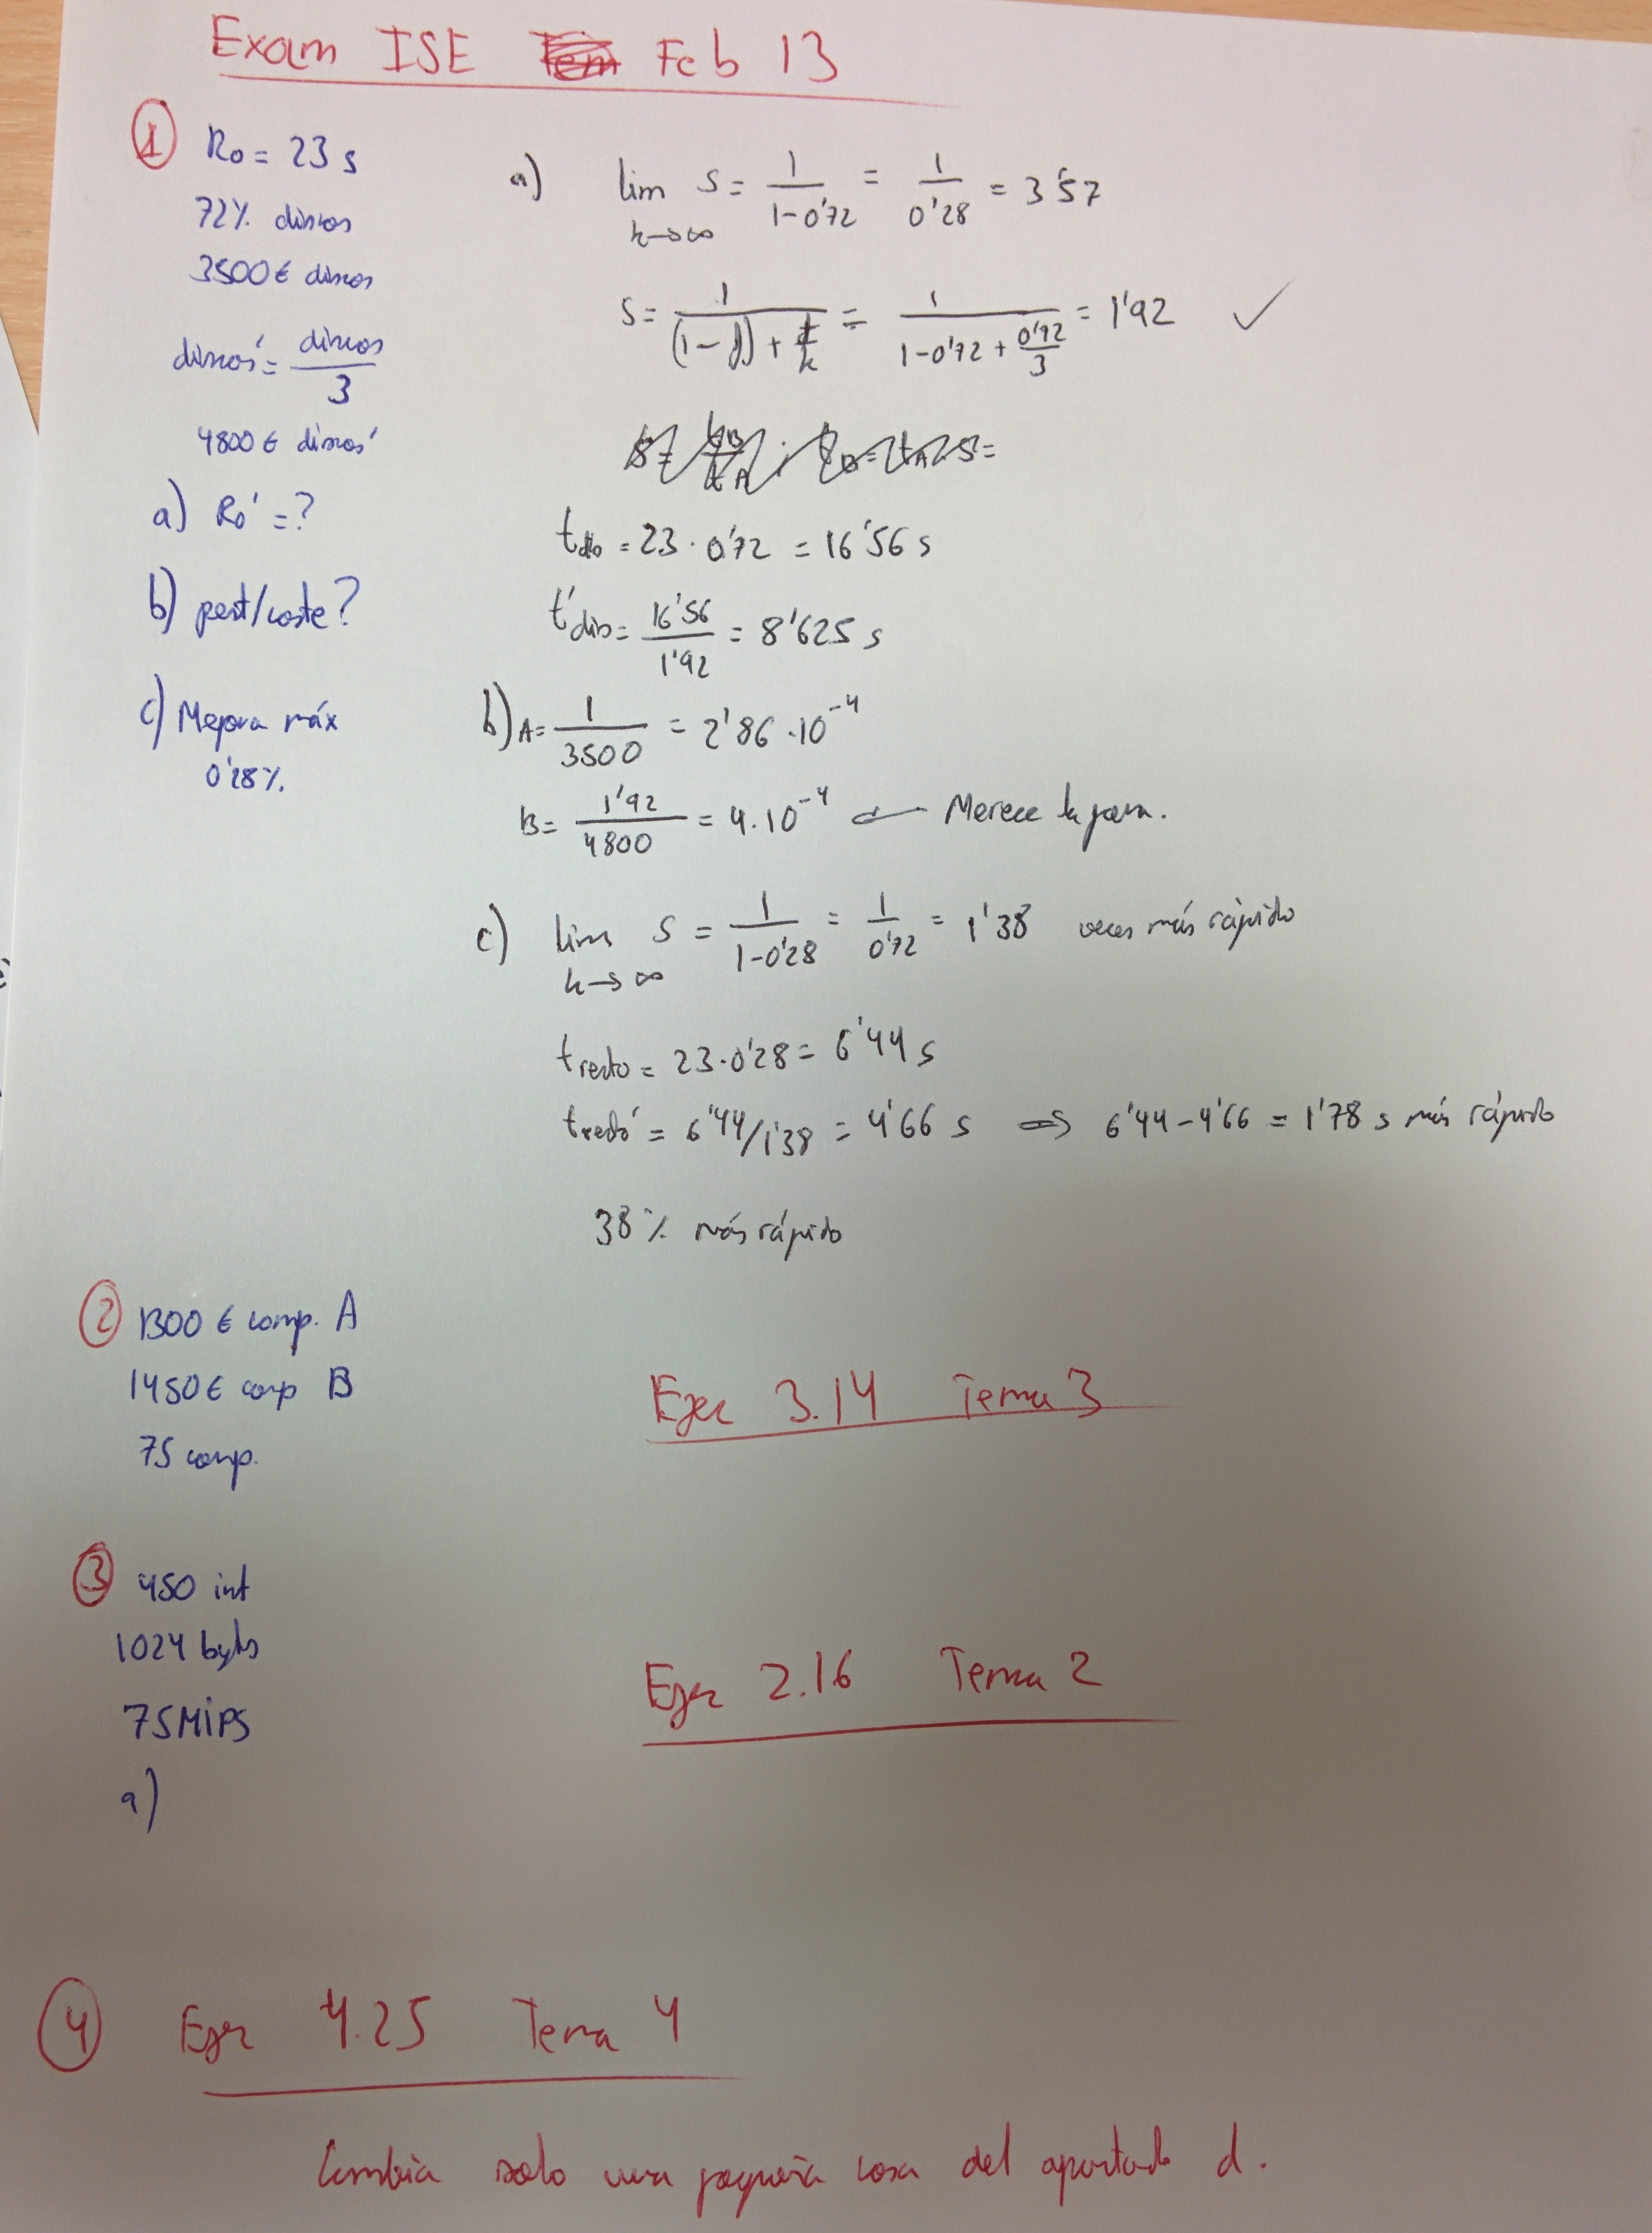 Exam ISE Feb 13
1 Ro = 23 s
72% discos
3500€ discos
discos' = discos / 3
4800 € discos'
a) Ro' = ?
b) pest/coste?
c) Mejora máx
0'28%.
a) lim S = 1 / 1-0'72 = 1 / 0'28 = 3'57
k→∞
S = 1 / (1-f) + f/k = 1 / 1-0'72 + 0'72/3 = 1'92 ✓
= 23 · 0'72 = 16'56 s
t'dis = 16'56 / 1'92 = 8'625 s
b) A = 1 / 3500 = 2'86 · 10^-4
B = 1'92 / 4800 = 4 · 10^-4 ← Merece la pena.
c) lim S = 1 / 1-0'28 = 1 / 0'72 = 1'38 veces más rápido
k→∞
tresto = 23 · 0'28 = 6'44 s
tresto' = 6'44/1'38 = 4'66 s ⇒ 6'44 - 4'66 = 1'78 s más rápido
38% más rápido
2 1300 € comp. A
1450 € comp B
75 comp.
Ejer 3.14 Tema 3
3 450 int
1024 byts
75 MiPS
a)
Ejer 2.16 Tema 2
4 Ejer 4.25 Tema 4
Cambia solo una pequeña cosa del apartado d.